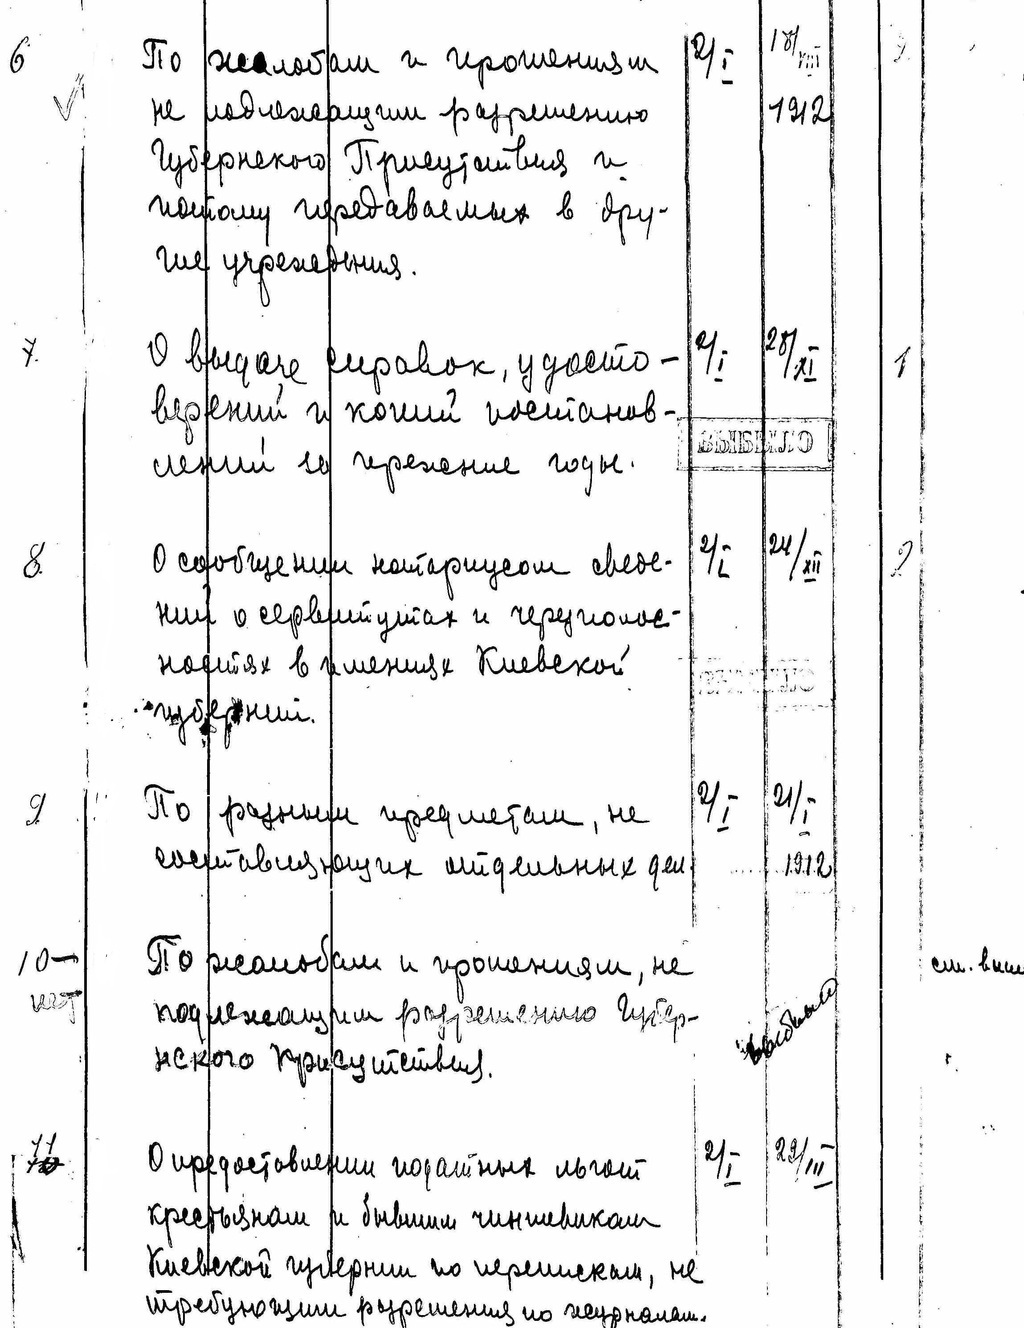 6 По жалобам и прошениям 2/I 18/VIII
не подлежащим разрешению 1912
Губернского Присутствия и
потому передаваемых в дру-
гие учреждения.
7 О выдаче справок, удосто- 2/I 28/XI 1
верений и копий постанов-
лений за прежние годы.
8 О сообщении нотариусом сведе- 2/I 24/XII 2
ний о сервитутах и череполос-
ностях в имениях Киевской
губернии.
9 По разным предметам, не 2/I 21/I
составляющих отдельных дел 1912
10 По жалобам и прошениям, не см. выш
нет подлежащим разрешению Губер- выбыло
нского Присутствия.
11 О предоставлении податных льгот 2/I 22/III
крестьянам и бывшим чиншевикам
Киевской губернии по перепискам, не
требующим разрешения по журналам.